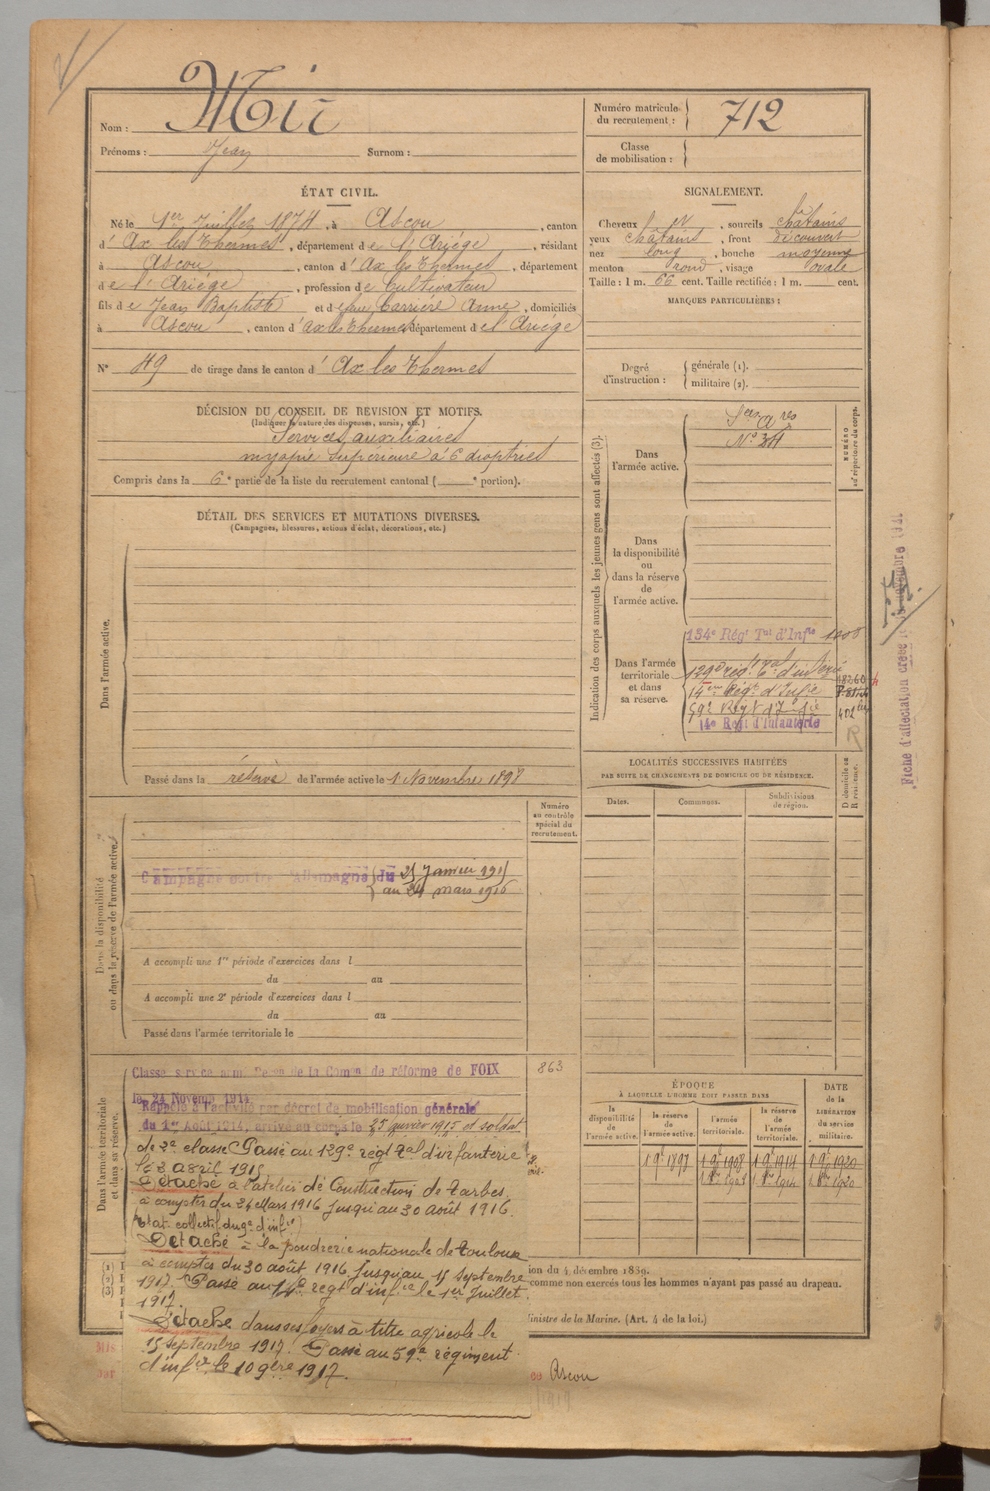 Nom : Mir
Prénoms : Jean Surnom :
Numéro matricule du recrutement : 712
Classe de mobilisation :
ÉTAT CIVIL.
Né le 1er Juillet 1874, à Ascou, canton
d'Ax les Thermes, département de l'Ariége, résidant
à Ascou, canton d'Ax les Thermes, département
de l'Ariége, profession de Cultivateur
fils de Jean Baptiste et de feue Carrière Anne, domiciliés
à Ascou, canton d'ax les Thermes département de l'Ariége
N° 49 de tirage dans le canton d'Ax les Thermes
SIGNALEMENT.
Cheveux et, sourcils châtains
yeux châtains, front découvert
nez long, bouche moyenne
menton rond, visage ovale
Taille : 1 m. 66 cent. Taille rectifiée : 1 m. cent.
MARQUES PARTICULIÈRES :
Degré d'instruction : générale (1). militaire (2).
DÉCISION DU CONSEIL DE REVISION ET MOTIFS.
(Indiquer la nature des dispenses, sursis, etc.)
Services auxiliaires
myopie supérieure à 6 dioptries
Compris dans la 6e partie de la liste du recrutement cantonal ( e portion).
DÉTAIL DES SERVICES ET MUTATIONS DIVERSES.
(Campagnes, blessures, actions d'éclat, décorations, etc.)
Dans l'armée active.
Passé dans la réserve de l'armée active le 1 Novembre 1898
Indication des corps auxquels les jeunes gens sont affectés (3).
NUMÉRO au répertoire du corps.
Dans l'armée active.
N° 34
Dans la disponibilité ou dans la réserve de l'armée active.
Dans l'armée territoriale et dans sa réserve.
134e Régt Tal d'Infie
129e régt Tal d'infterie
14eme Régt d'Infie
59e Régt d'Infie
14e Regt d'Infanterie
Fiche d'affectation créée le novembre 1921
LOCALITÉS SUCCESSIVES HABITÉES
PAR SUITE DE CHANGEMENTS DE DOMICILE OU DE RÉSIDENCE.
Dates. Communes. Subdivisions de région.
D domicile ou R résidence.
Numéro au contrôle spécial du recrutement.
Dans la disponibilité ou dans la réserve de l'armée active.
Campagne contre l'Allemagne du 25 Janvier 1915
au 24 mars 1916
A accompli une 1re période d'exercices dans l
du au
A accompli une 2e période d'exercices dans l
du au
Passé dans l'armée territoriale le
863
Dans l'armée territoriale et dans sa réserve.
Classé service armé de la Comon de réforme de FOIX
le 24 Novemb 1914
Rappelé à l'activité par décret de mobilisation générale
du 1er Août 1914, arrivé au corps le 25 janvier 1915 et soldat
de 2e classe Passé au 129e régt Tal d'infanterie
le 3 avril 1915
Détaché à l'atelier de Construction de Tarbes
à compter du 24 Mars 1916 Jusqu'au 30 août 1916.
Détaché à la poudrerie nationale de Toulouse
à compter du 30 août 1916 Jusqu'au 15 Septembre
1917. Passé au 14e régt d'infie le 1er Juillet
1917.
Détaché dans ses foyers à titre agricole le
15 septembre 1917. Passé au 59e régiment
d'infie le 10 9bre 1917.
ÉPOQUE
À LAQUELLE L'HOMME DOIT PASSER DANS
la disponibilité de l'armée active. la réserve de l'armée active. l'armée territoriale. la réserve de l'armée territoriale.
DATE de la LIBÉRATION du service militaire.
1 9e 1897 1 9e 1908 1 9e 1914 1 9e 1920
ion du 4 décembre 1889.
comme non exercés tous les hommes n'ayant pas passé au drapeau.
inistre de la Marine. (Art. 4 de la loi.)
Ascou